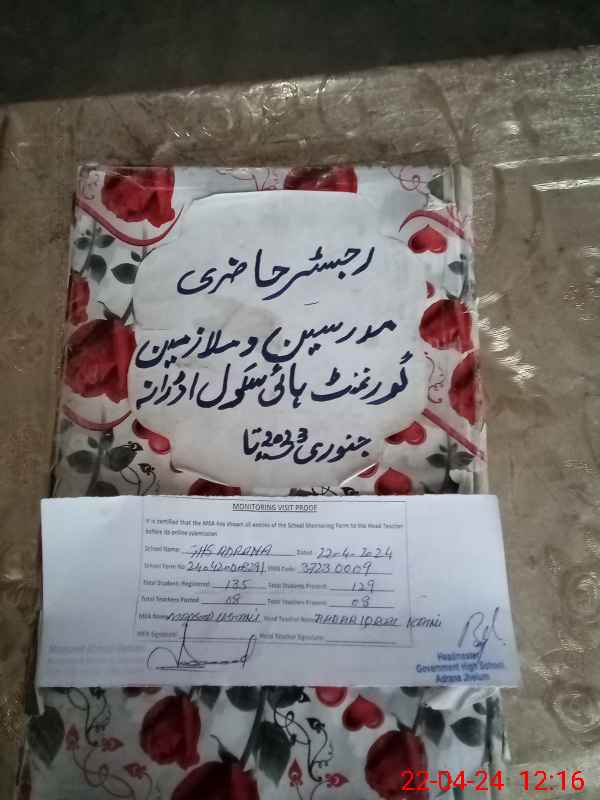 رجسٹر حاضری
مدرسین و ملازمین
گورنمنٹ ہائی سکول اڈرانہ
جنوری 2023ء تا
MONITORING VISIT PROOF
It is certified that the MEA has shown all entries of the School Monitoring Form to the Head Teacher
before its online submission
School Name: GHS ADRANA Dated: 22-04-2024
School Form No EMIS Code: 37230009
Total Students Registered: 135 Total Students Present: 129
Total Teachers Posted 08 Total Teachers Present: 08
MEA Name Head Teacher Name IQBAL
MEA Signature: Head Teacher Signature:
Headmaster
Government High School,
Adrana Jhelum
22-04-24 12:16